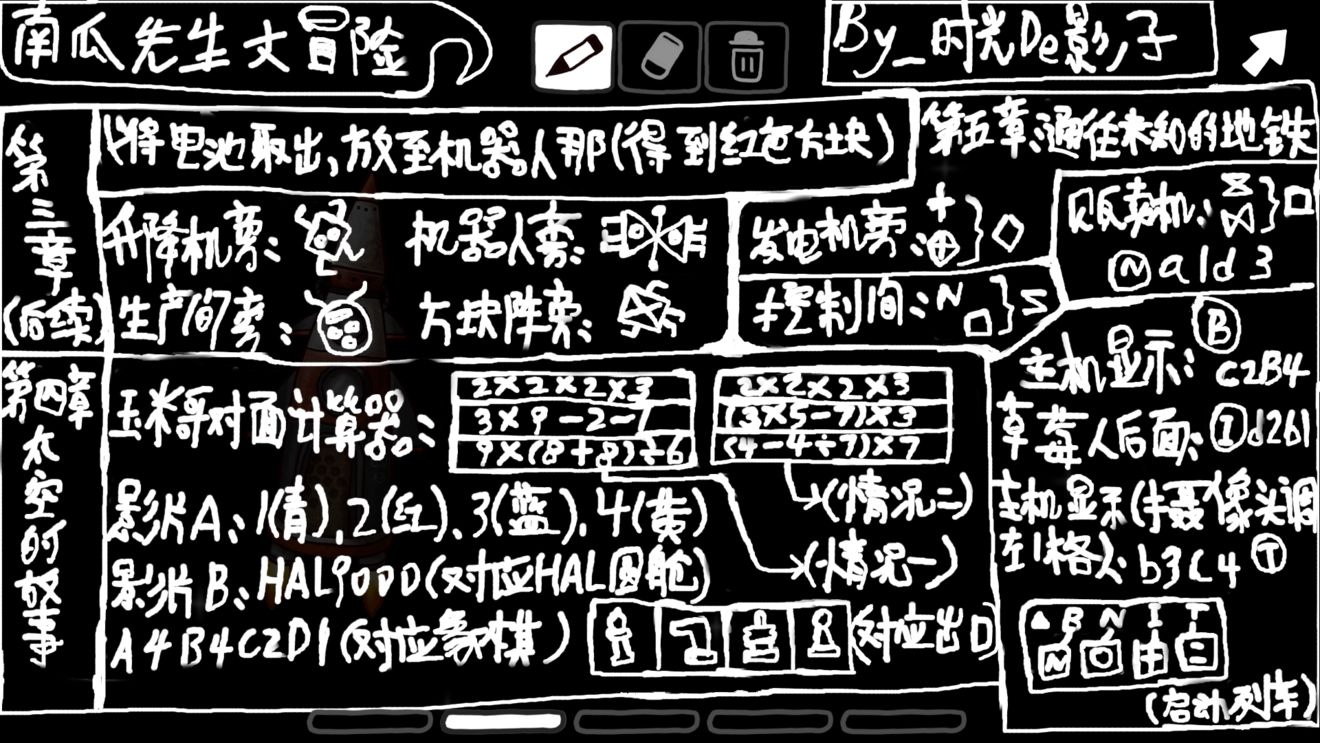 南瓜先生大冒险
By_时光De影子
第三章(后续)
(将电池取出,放至机器人那(得到红色方块)
升降机旁:
机器人旁:
生产间旁:
方块阵旁:
发电机旁:
控制间:N
S
第四章 太空的故事
玉米哥对面计算器:
2×2×2×3
3×9-2-1
9×(8+8)÷6
2×2×2×3
(3×5-7)×3
(4-4÷7)×7
(情况二)
(情况一)
影片A:1(青),2(红),3(蓝),4(黄)
影片B:HAL9000(对应HAL圆舱)
A4B4C2D1(对应象棋)
(对应出口)
第五章:通往未知的地铁
贩卖机:
N a1d3
主机显示:B c2B4
草莓人后面:I d2b1
主机显示(摄像头调
至1格):b3C4 T
A B N I T
(启动列车)